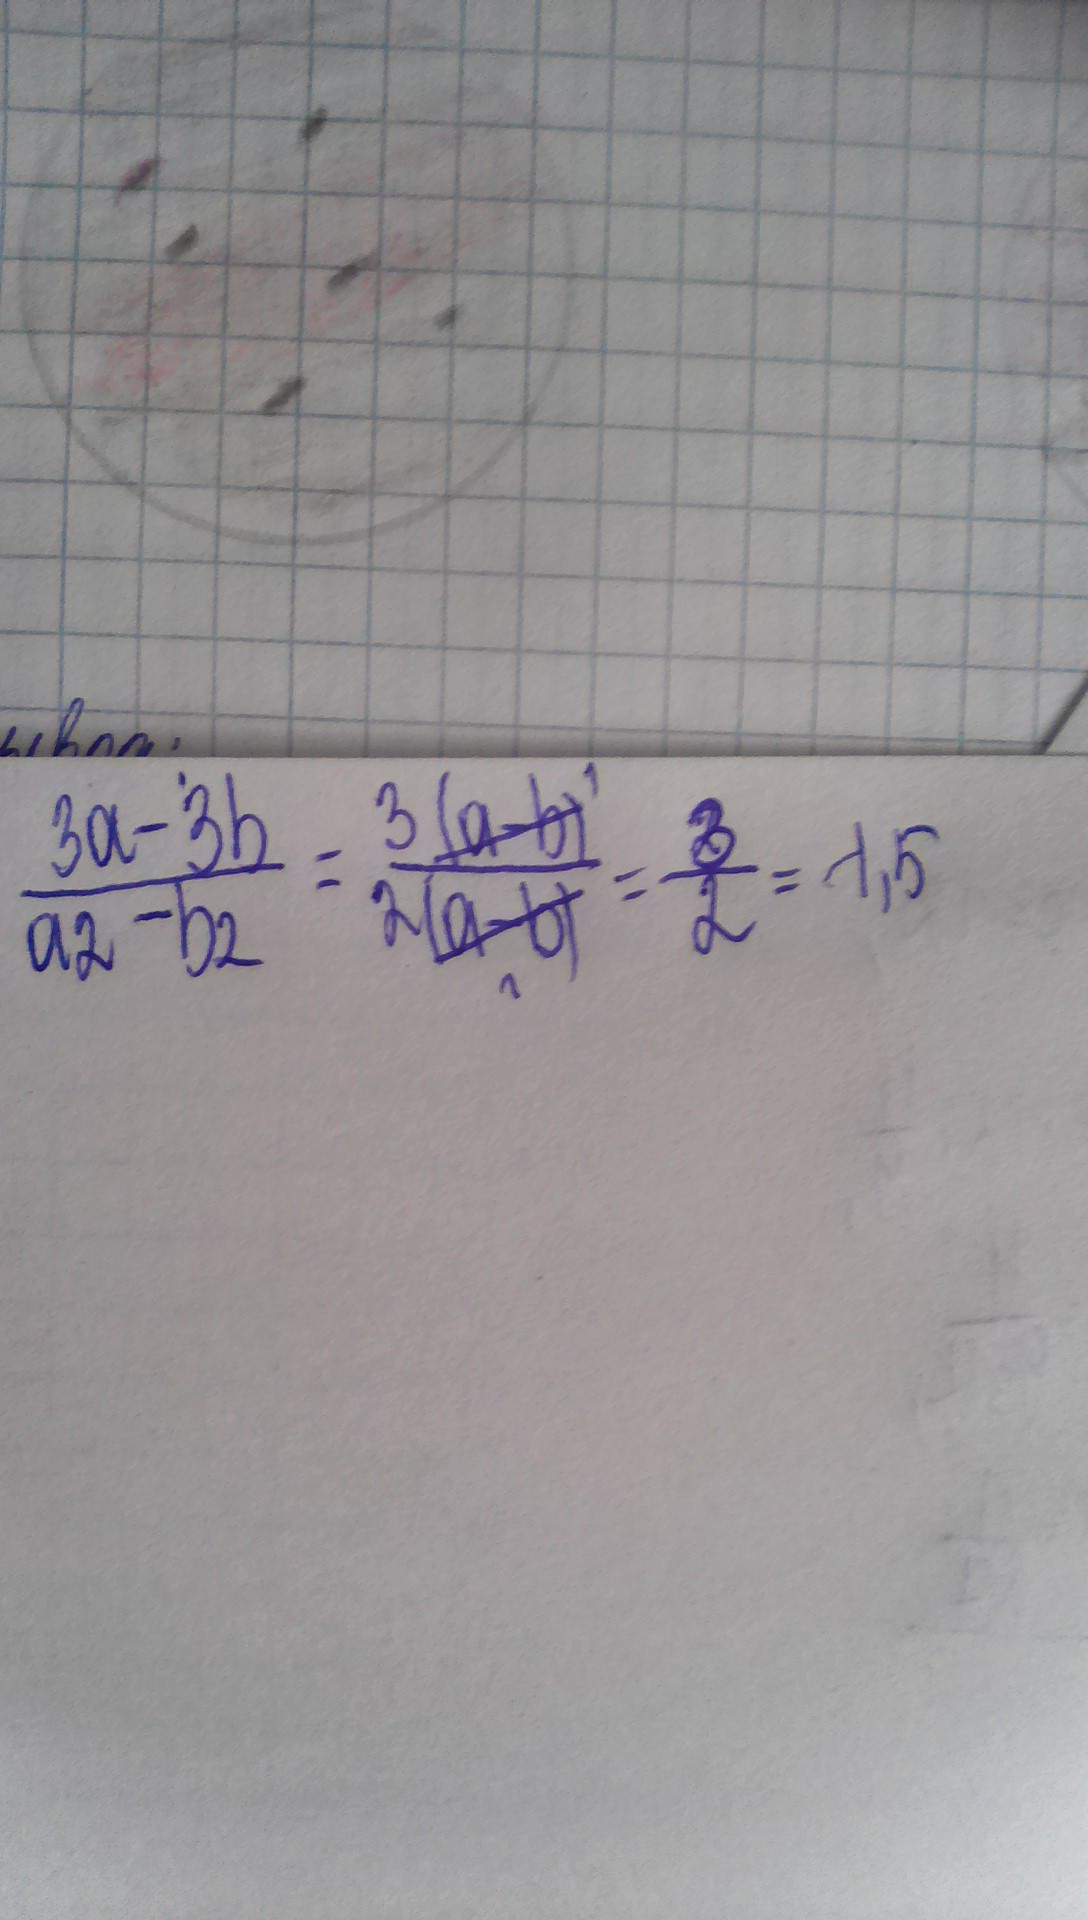 3a-3b/a2-b2 = 3(a-b)¹/2(a-b)₁ = 3/2 = 1,5